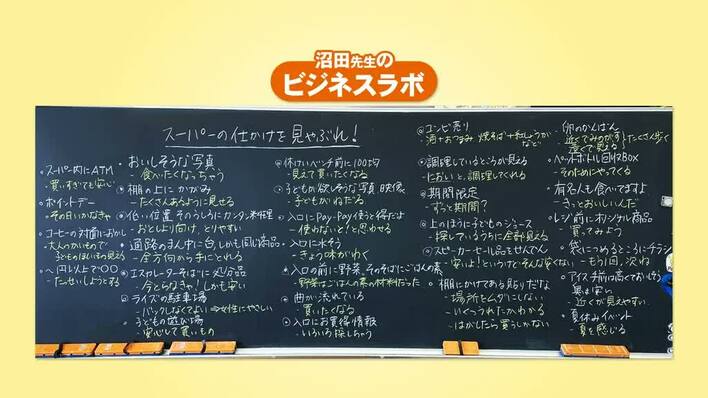 沼田先生の
ビジネスラボ
スーパーの仕かけを見やぶれ!
スーパー内にATM
買いすぎても安心
ポイントデー
その日いかなきゃ
コーヒーの対面におかし
大人のかいもので
子どものほしいもの見える
円以上で〇〇
たっせいしようとする
おいしそうな写真
食べたくなっちゃう
棚の上にかがみ
たくさんあるように見せる
低い位置 そのうしろにカンタン料理
おとしより向け、とりやすい
通路のまん中に台、しかも同じ商品
全方向から手にとれる
エスカレーターそばに処分品
今とらなきゃ!しかも安い
ライズの駐車場
バックしなくてよい⇒女性にやさしい
子どもの遊び場
安心して買いもの
休けいベンチ前に100均
見えて買いたくなる
子どもが欲しそうな写真 映像
子どもがねだる
入口にPayPay使うと得だよ
使わないと?と思わせる
入口に水そう
きょう味がわく
入口の前に野菜、そのそばにごはんの素
野菜はごはんの素の材料だった
曲が流れている
買いたくなる
入口にお買得情報
いろいろ探しちゃう
コンビ売り
酒+おつまみ 焼そば+紅しょうがなど
調理しているところが見える
においと、調理してくれる
期間限定
ずっと期間?
上のほうに子どものジュース
探しているうちに全部見える
スピーカーセール品とかせんでん
安いよ!というけどそんな安くない
棚にかけてある貼りだな
場所をムダにしない
いくつうれたかわかる
はがしたら買うしかない
卵のかんばん
近くでみのがす
遠くで見える
たくさん歩く
ペットボトル回収BOX
そのためにやってくる
有名人も食べてますよ
きっとおいしいんだ
レジ前にオリジナル商品
買ってみよう
袋につめるところにチラシ
もう1回、次ね
アイス手前は高くておいそう
奥は安い
近くが見えやすい
夏休みイベント
夏を感じる